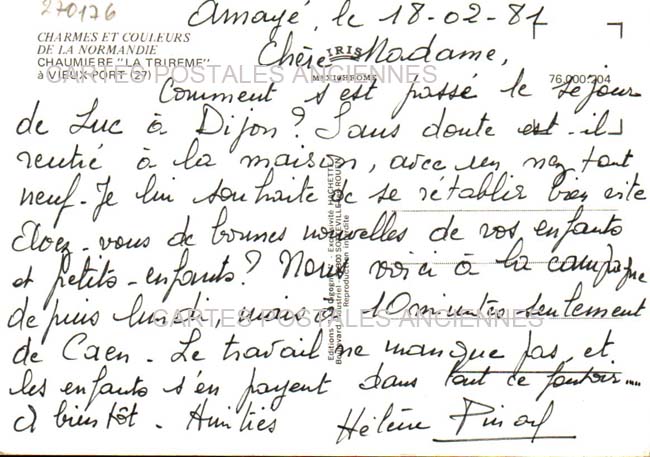 270176
Amayé, le 18-02-81
CHARMES ET COULEURS
DE LA NORMANDIE
CHAUMIERE "LA TRIREME"
à VIEUX-PORT (27)
IRIS
MEXICHROME
76.000.204
Chère Madame,
CARTES POSTALES ANCIENNES
Comment s'est passé le séjour
de Luc à Dijon? Sans doute est-il
rentré à la maison, avec un nez tout
neuf. Je lui souhaite de se rétablir bien vite
Avez-vous de bonnes nouvelles de vos enfants
et petits-enfants? Nous voici à la campagne
depuis lundi, mais à 10 minutes seulement
CARTES POSTALES ANCIENNES
de Caen. Le travail ne manque pas, et
les enfants s'en payent dans tout ce
A bientôt. Amitiés Hélène
Reproduction interdite